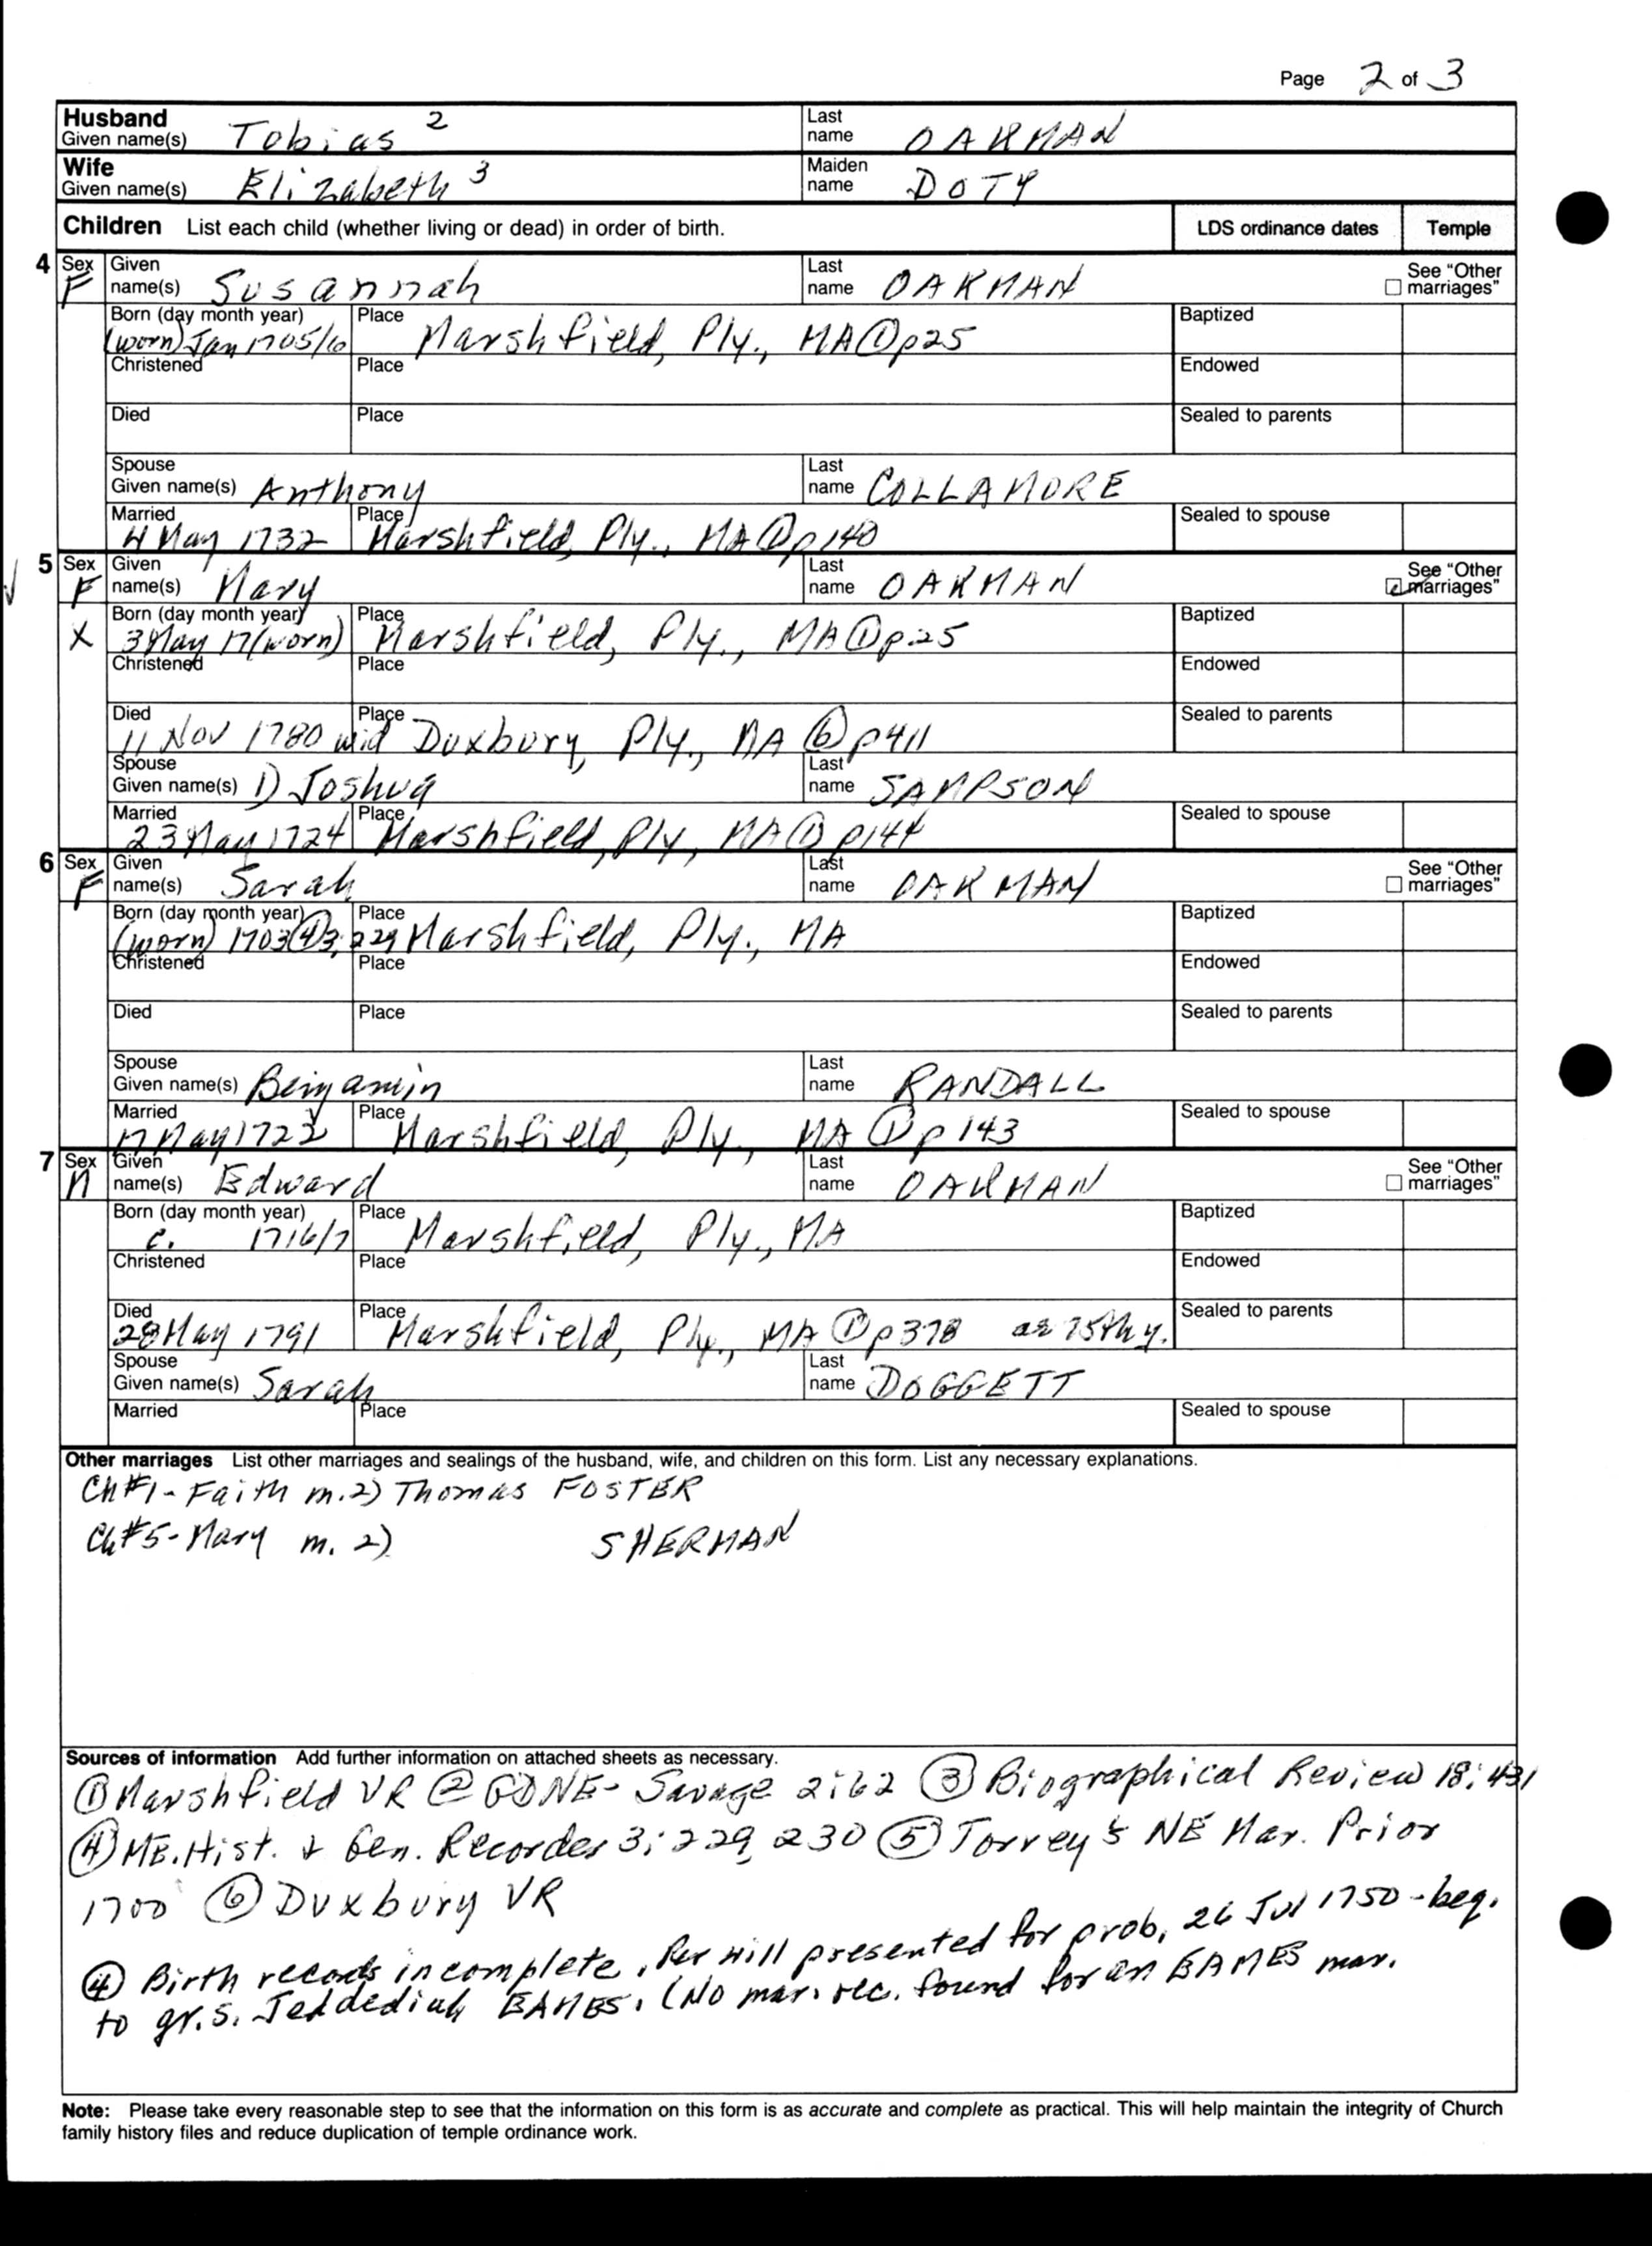 Page 2 of 3
Husband Given name(s) Tobias 2 Last name OAKMAN
Wife Given name(s) Elizabeth 3 Maiden name DOTY
Children List each child (whether living or dead) in order of birth. LDS ordinance dates Temple
4 Sex F Given name(s) Susannah Last name OAKMAN See "Other marriages"
Born (day month year) (worn) Jan 1705/6 Place Marshfield, Ply., MA ① p25 Baptized
Christened Place Endowed
Died Place Sealed to parents
Spouse Given name(s) Anthony Last name COLLAMORE
Married 4 May 1732 Place Marshfield, Ply., MA ① p140 Sealed to spouse
5 Sex F Given name(s) Mary Last name OAKMAN See "Other marriages"
X Born (day month year) 3 May 17(worn) Place Marshfield, Ply., MA ① p25 Baptized
Christened Place Endowed
Died 11 Nov 1780 wid Place Duxbury, Ply., MA ⑥ p411 Sealed to parents
Spouse Given name(s) 1) Joshua Last name SAMPSON
Married 23 May 1724 Place Marshfield, Ply, MA ① p144 Sealed to spouse
6 Sex F Given name(s) Sarah Last name OAKMAN See "Other marriages"
Born (day month year) (worn) 1703 ④ 3; 229 Place Marshfield, Ply., MA Baptized
Christened Place Endowed
Died Place Sealed to parents
Spouse Given name(s) Benjamin Last name RANDALL
Married 17 May Place Marshfield, Ply., MA ① p143 Sealed to spouse
7 Sex M Given name(s) Edward Last name OAKMAN See "Other marriages"
Born (day month year) c. 1716/7 Place Marshfield, Ply., MA Baptized
Christened Place Endowed
Died 28 May 1791 Place Marshfield, Ply., MA ① p378 ae 75th y. Sealed to parents
Spouse Given name(s) Sarah Last name DOGGETT
Married Place Sealed to spouse
Other marriages List other marriages and sealings of the husband, wife, and children on this form. List any necessary explanations.
Ch#1 - Faith m. 2) Thomas FOSTER
Ch#5 - Mary m. 2) SHERMAN
Sources of information Add further information on attached sheets as necessary.
① Marshfield VR ② GDNE - Savage 2:62 ③ Biographical Review 18:431
④ ME. Hist. + Gen. Recorder 3; 229, 230 ⑤ Torrey's NE Mar. Prior
1700 ⑥ Duxbury VR
④ Birth records incomplete. Per will presented for prob. 26 Jul 1750 - beq.
to gr.s. Jeddediah EAMES. (No mar. rec. found for an EAMES mar.
Note: Please take every reasonable step to see that the information on this form is as accurate and complete as practical. This will help maintain the integrity of Church
family history files and reduce duplication of temple ordinance work.